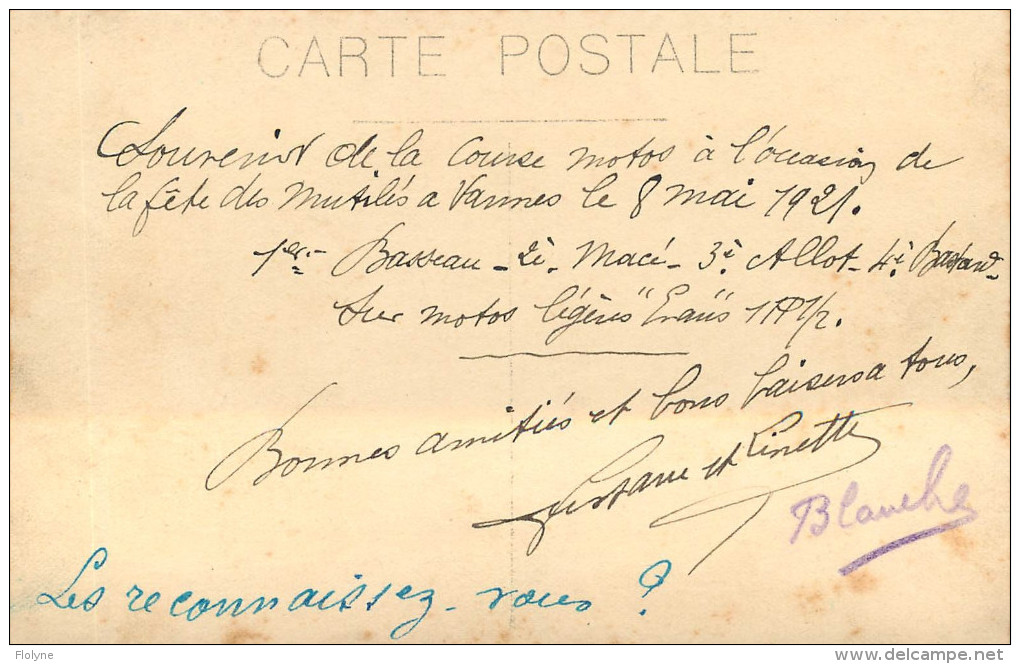 CARTE POSTALE
Souvenir de la course motos à l'occasion de
la fête des Mutilés a Vannes le 8 mai 1921.
1er.- Basseau - 2è. Macé - 3è. Allot - 4è. Bastard -
Sur motos légères
Bonnes amitiés et bons baisers a tous,
Gustave et Ginette
Blanche
Les reconnaissez-vous ?
Flolyne
delcampe.net